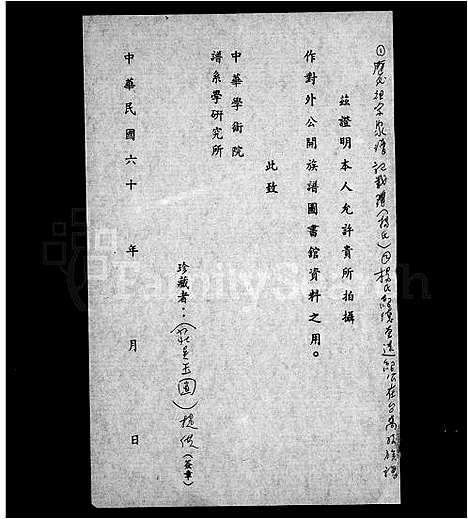 ①歷代祖宗家譜記載簿(楊氏)②楊氏
茲證明本人允許貴所拍攝
作對外公開族譜圖書館資料之用。
此致
中華學術院
譜系學研究所
珍藏者：(莊呈玉圓)楊 (簽章)
中華民國六十 年 月 日
FamilySearch